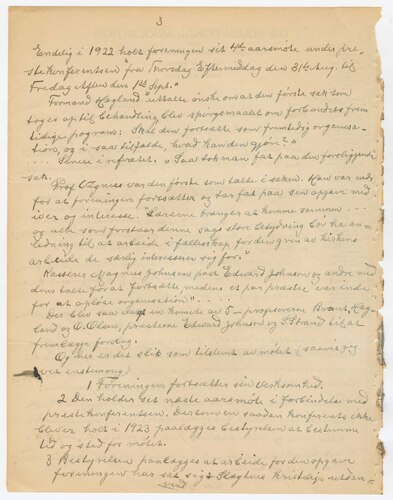 3
Endelig i 1922 holt foreningen sit 4de aarsmöte under pre-
stekonferentsen "fra Torsdag Eftermiddag den 31te Aug. til
Fredag Aften den 1ste Sept."
Formand Høyland uttalte ønske om at den første sak som
toges op til behandling blev spørgsmaalet om forbundets frem
tidige program: Skal den fortsætte som fremtidig organisa-
tion, og i saa tilfælde, hvad kan den gjøre?"
.... Videre i refratet. "Saa tok man fat paa den foreliggende
sak.
Prof. O. Egness var den første som talte i saken. Han var indr
for at foreningen fortsætter og tar fat paa sin opgave med
iver og interesse. "Lærerne trænger at komme sammen ---
og alle som forstaar denne sags store betydning bør ha an-
ledning til at arbeide i fællesskap for den gren av kirkens
arbeide de særlig interesserer sig for."
Kasserer Magnus Johnson, past Edward Johnson og andre med
dem talte for at fortsætte medens et par prester var inde
for "at opløse organisation" .....
Der blev saa valgt en komite av 5 — professorerne Brandt, Høy
land og O. Olson, presterne Edward Johnson og S. Strand til at
fremlægge forslag.
Og her er det slik som tilstemt av mötet (
vet enstemmig)
1 Foreningen fortsætter sin virksomhed.
2 Den holder sit næste aarsmöte i forbindelse med
prestekonferentsen. Dersom en saadan konferents ikke
bliver holt i 1923 paalægges bestyrelsen at bestemme
tid og sted for mötet.
3 Bestyrelsen paalægges at arbeide for den opgave
foreningen har sat sig: Slegtens kristelige utdan-